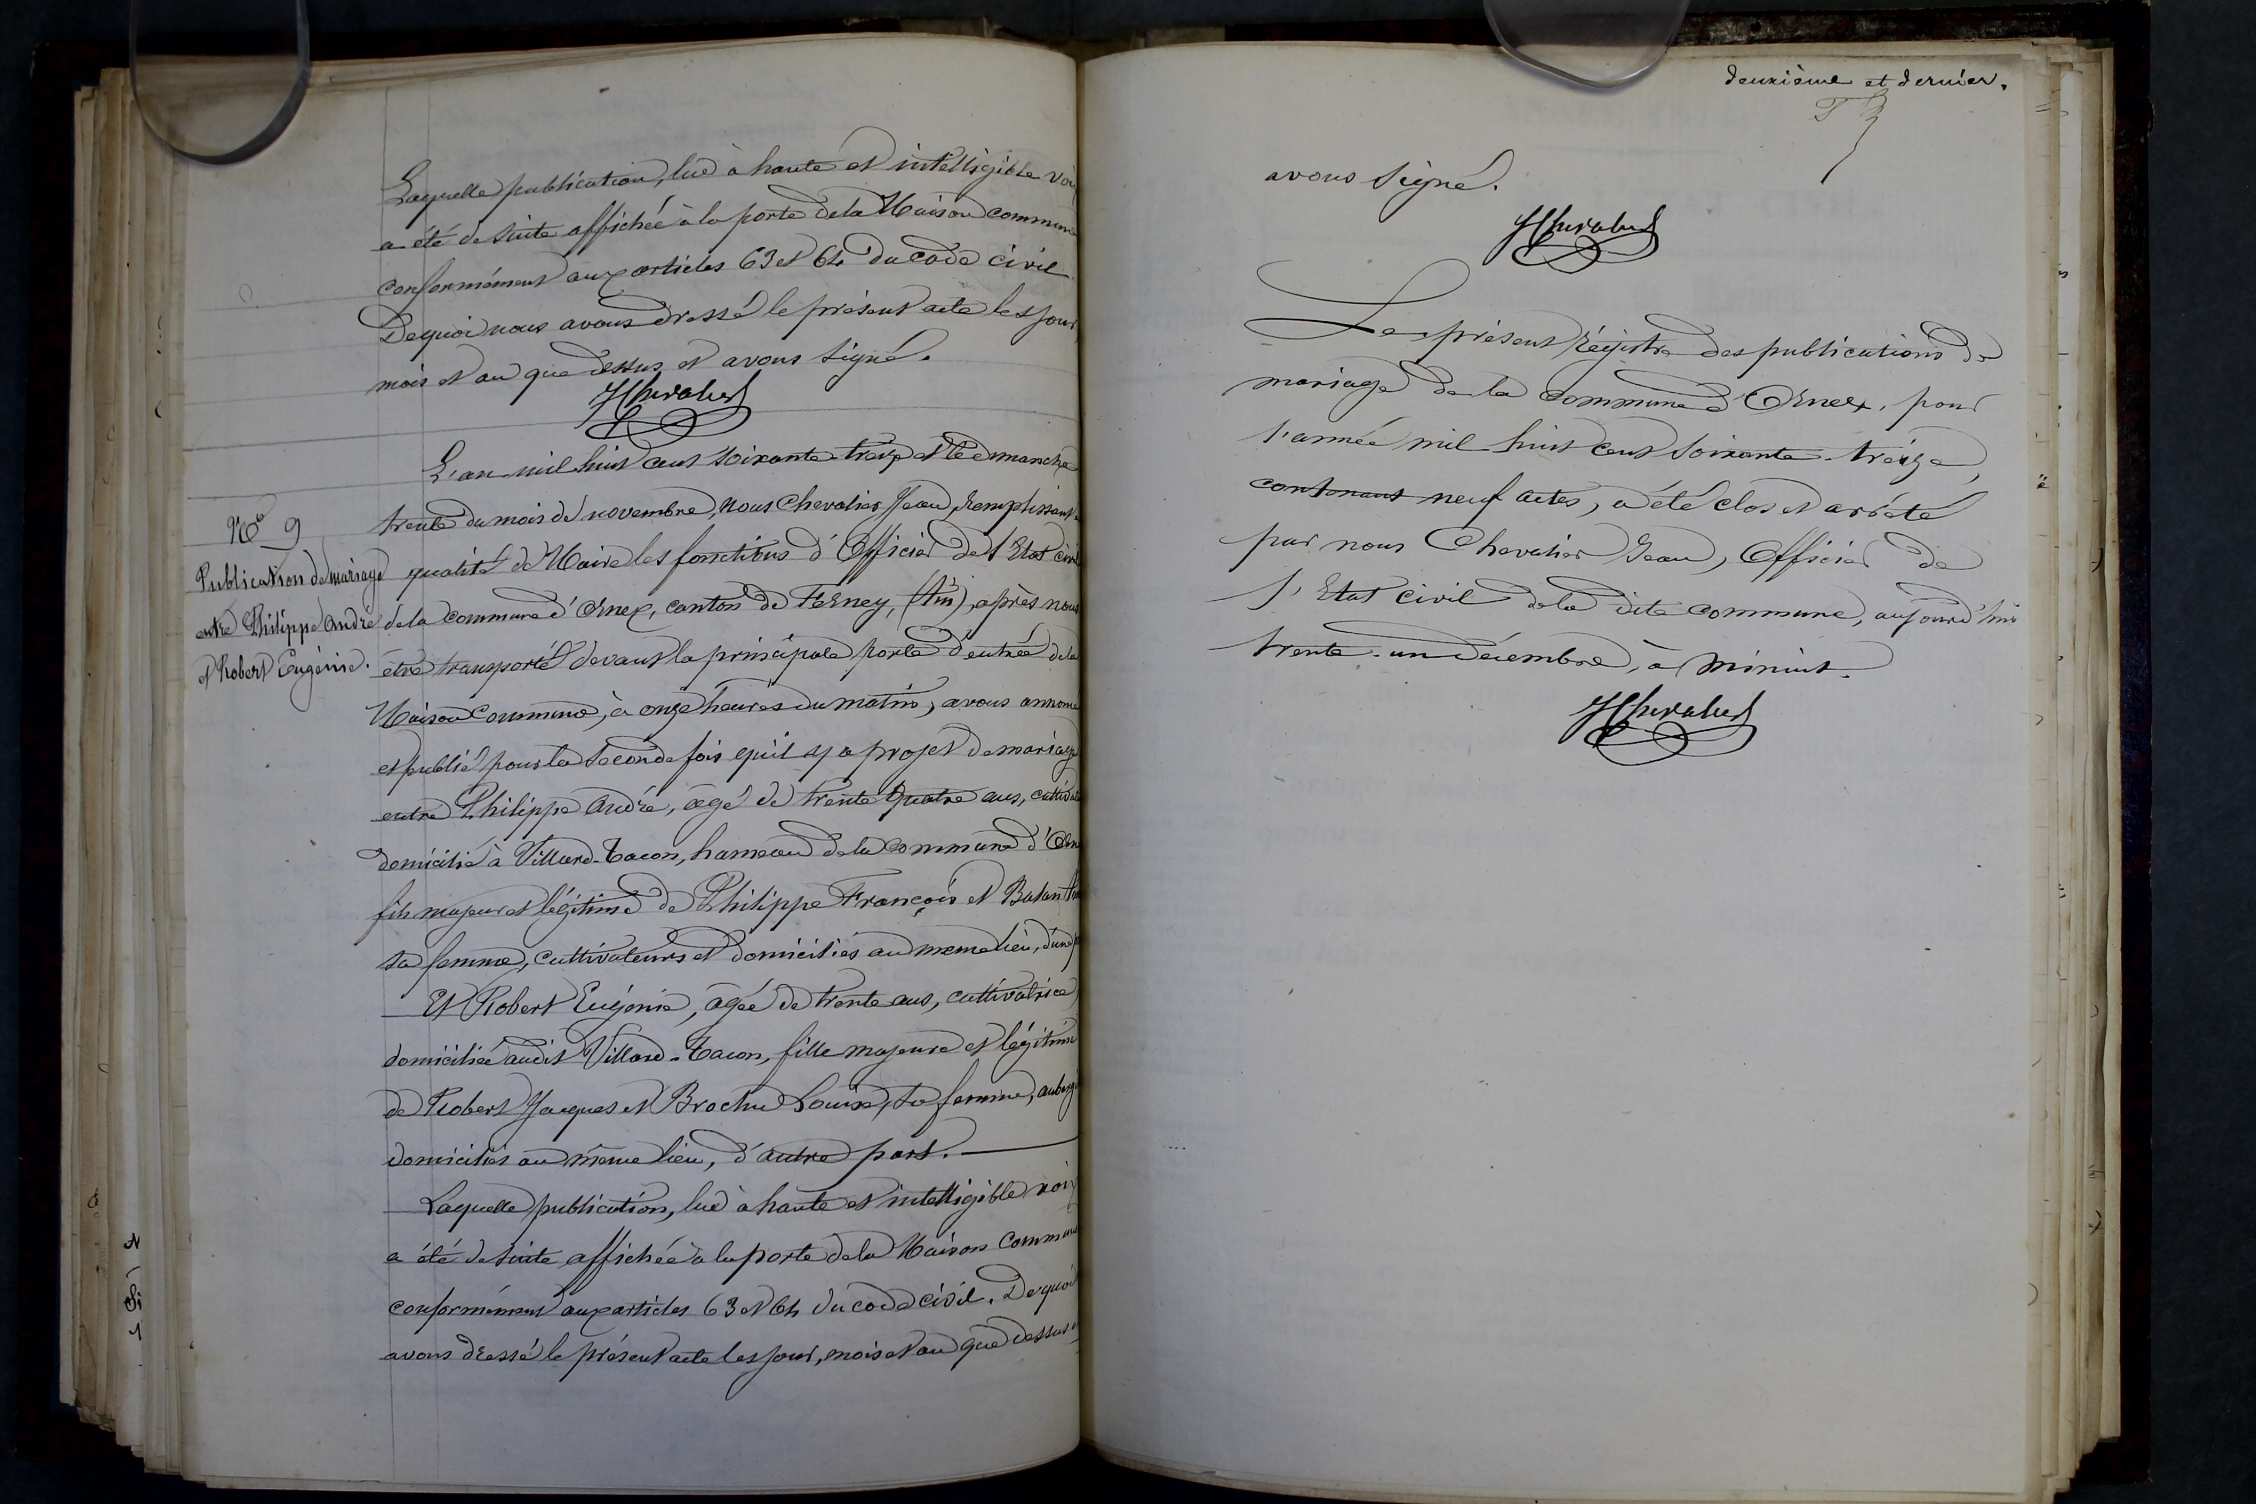 Laquelle publication, lue à haute et intelligible voix
a été de suite affichée à la porte de la Maison commune
conformément aux articles 63 et 64 du code civil
De quoi nous avons dressé le présent acte les jour,
mois et an que dessus et avons signé.
JChevalier
L'an mil huit cent soixante-treize et le dimanche
trente du mois de novembre, nous Chevalier Jean, remplissant
N° 9
Publication de mariage
entre Philippe André
et Robert Eugénie.
qualité de Maire les fonctions d'Officier de l'Etat civil
de la commune d'Ornex, canton de Ferney, (Ain), après nous
être transporté devant la principale porte d'entrée de la
Maison Commune, à onze heures du matin, avons annoncé
et publié pour la seconde fois qu'il y a projet de mariage
entre Philippe André, âgé de trente quatre ans, cultivat
domicilié à Villard-Tacon, hameau de la commune d'Orn
fils majeur et légitime de Philippe François et
sa femme, cultivateurs et domiciliés au même lieu, d'une p
Et Robert Eugénie, âgée de trente ans, cultivatrice,
domiciliée audit Villard-Tacon, fille majeure et légitime
de Robert Jacques et Brochu Louise, sa femme, auberg
domiciliés au même lieu, d'autre part.
Laquelle publication, lue à haute et intelligible voix
a été de suite affichée à la porte de la Maison Commune
conformément aux articles 63 et 64 du code civil. De quoi
avons dressé le présent acte les jour, mois et an que dessus et
deuxième et dernier.
avons signé.
JChevalier
Le présent régistre des publications de
mariage de la commune d'Ornex, pour
l'année mil huit cent soixante-treize,
contenant neuf actes, a été clos et arrêté
par nous Chevalier Jean, Officier de
l'Etat civil de la dite commune, aujourd'hui
trente-un décembre, à minuit.
JChevalier